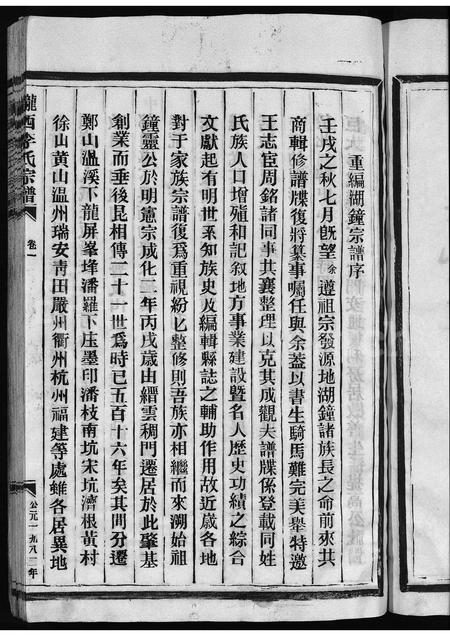 重編湖鐘宗譜序
壬戌之秋七月既望余遵祖宗發源地湖鐘諸族長之命前來共
商輯修譜牒復將纂事囑任與余蓋以書生騎馬難完美舉特邀
王志宦周銘諸同事共襄整理以克其成觀夫譜牒係登載同姓
氏族人口增殖和記叙地方事業建設暨名人歷史功績之綜合
文獻起有明世系知族史及編輯縣誌之輔助作用故近歲各地
對于家族宗譜復爲重視紛匕整修則吾族亦相繼而來溯始祖
鐘靈公於明憲宗成化二年丙戌歲由縉雲稠門遷居於此肇基
創業而垂後昆相傳二十一世爲時已五百十六年矣其間分遷
鄭山溫溪下龍屏峯埄潘羅下庄墨印潘枝南坑宋坑濟根黃村
徐山黄山温州瑞安靑田嚴州衢州杭州福建等處雖各居異地
隴西李氏宗譜
卷一
公元一九八二年